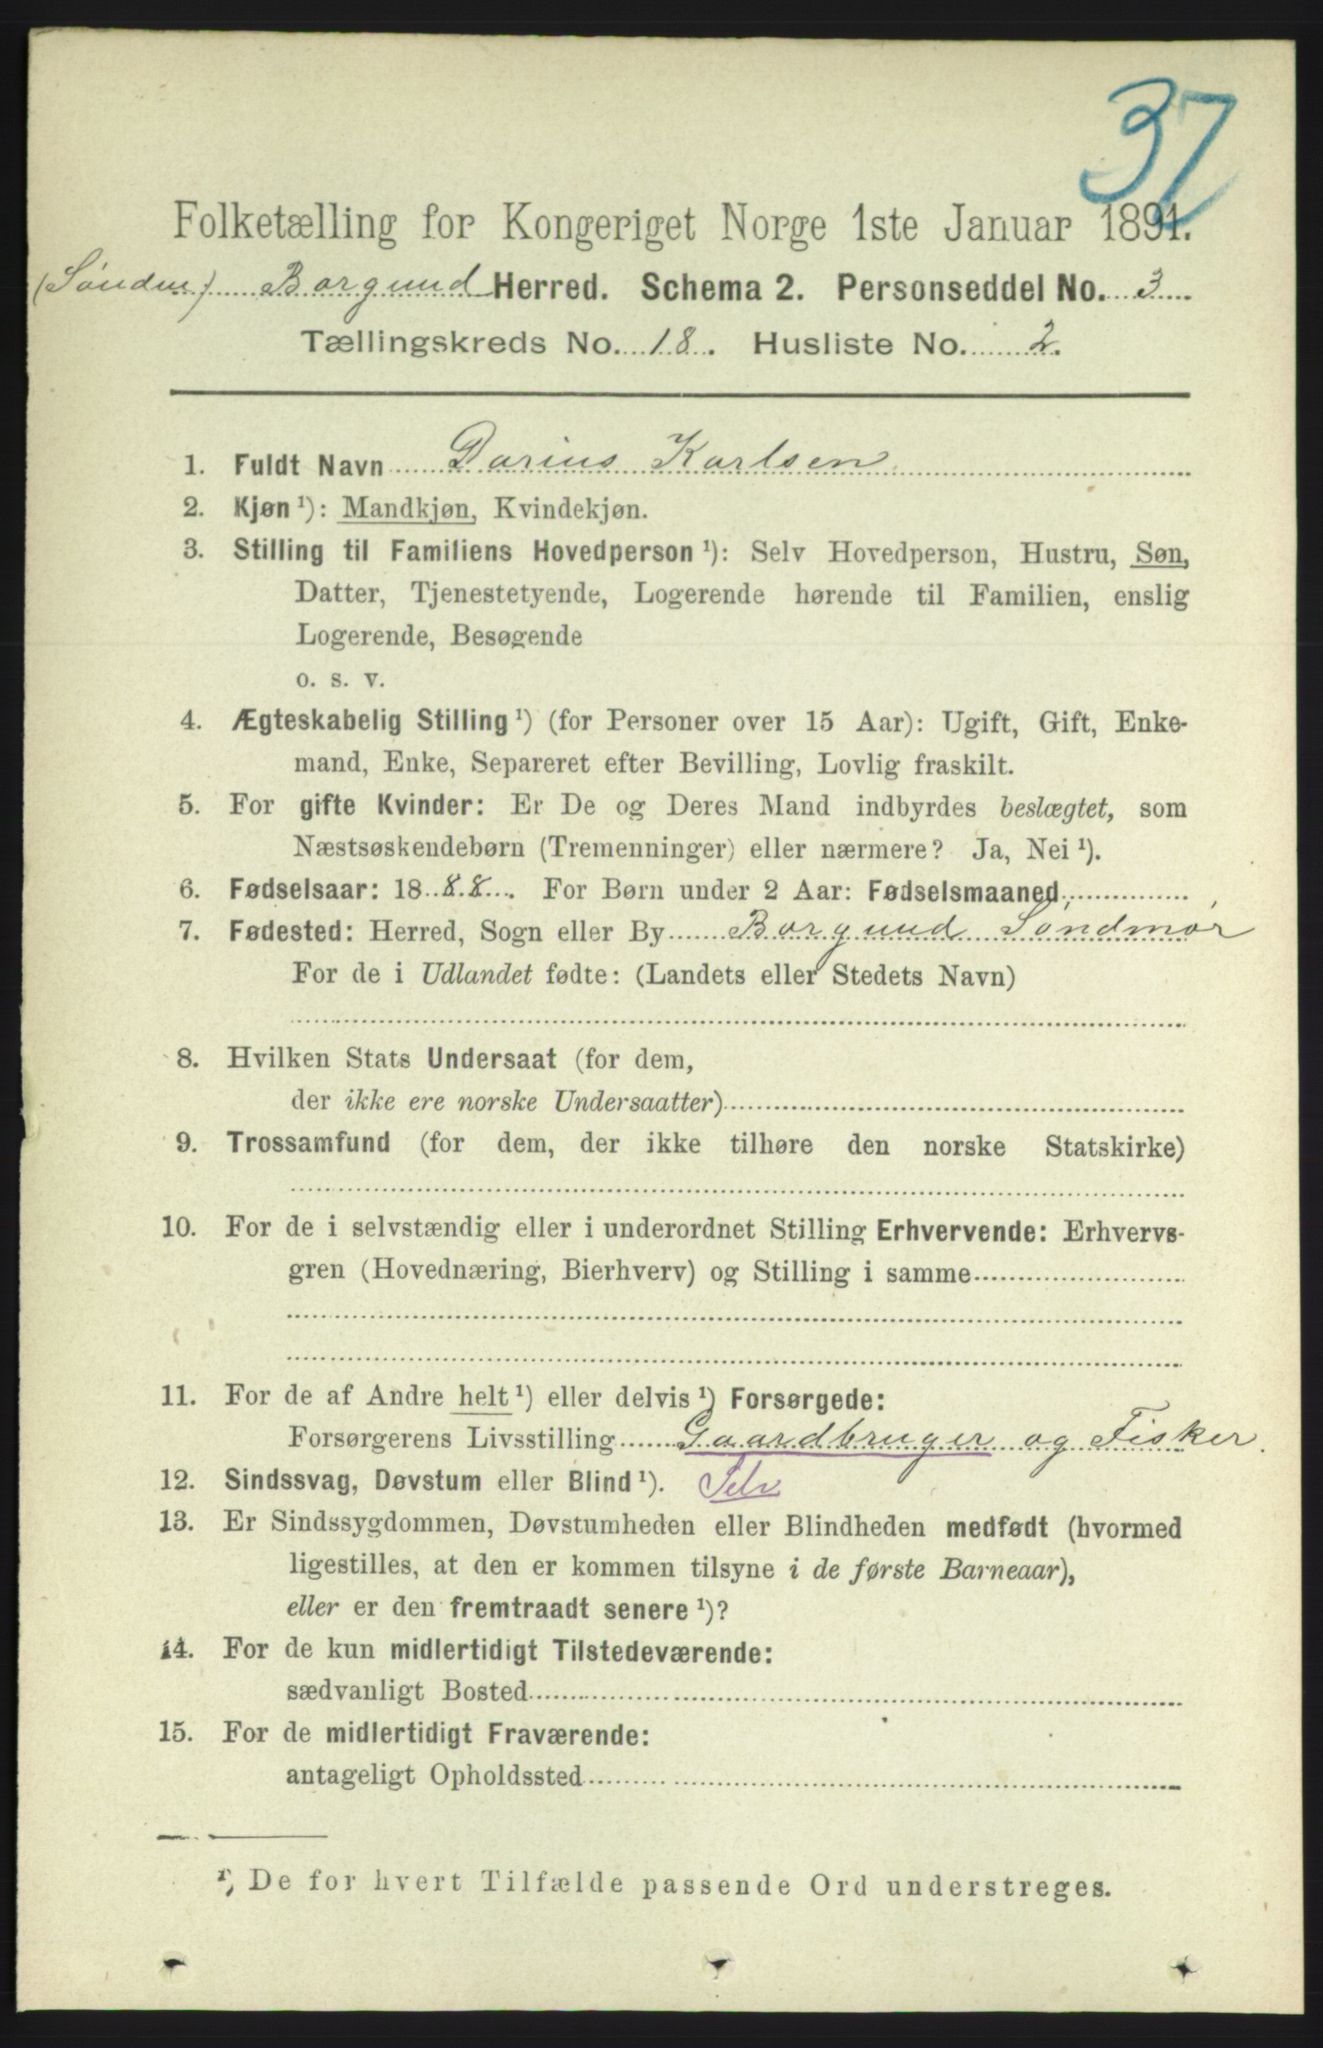 37
Folketælling for Kongeriget Norge 1ste Januar 1891.
Borgund Herred. Schema 2. Personseddel No. 3
Tællingskreds No. 18. Husliste No. 2.
1. Fuldt Navn Darius Karlsen
2. Kjøn ¹): Mandkjøn, Kvindekjøn.
3. Stilling til Familiens Hovedperson ¹): Selv Hovedperson, Hustru, Søn,
Datter, Tjenestetyende, Logerende hørende til Familien, enslig
Logerende, Besøgende
o. s. v.
4. Ægteskabelig Stilling ¹) (for Personer over 15 Aar): Ugift, Gift, Enke-
mand, Enke, Separeret efter Bevilling, Lovlig fraskilt.
5. For gifte Kvinder: Er De og Deres Mand indbyrdes beslægtet, som
Næstsøskendebørn (Tremenninger) eller nærmere? Ja, Nei ¹).
6. Fødselsaar: 1888. For Børn under 2 Aar: Fødselsmaaned
7. Fødested: Herred, Sogn eller By Borgund Søndmør
For de i Udlandet fødte: (Landets eller Stedets Navn)
8. Hvilken Stats Undersaat (for dem,
der ikke ere norske Undersaatter)
9. Trossamfund (for dem, der ikke tilhøre den norske Statskirke)
10. For de i selvstændig eller i underordnet Stilling Erhvervende: Erhvervs-
gren (Hovednæring, Bierhverv) og Stilling i samme
11. For de af Andre helt ¹) eller delvis ¹) Forsørgede:
Forsørgerens Livsstilling Gaardbruger og Fisker.
12. Sindssvag, Døvstum eller Blind ¹). Selv
13. Er Sindssygdommen, Døvstumheden eller Blindheden medfødt (hvormed
ligestilles, at den er kommen tilsyne i de første Barneaar),
eller er den fremtraadt senere ¹)?
14. For de kun midlertidigt Tilstedeværende:
sædvanligt Bosted
15. For de midlertidigt Fraværende:
antageligt Opholdssted
¹) De for hvert Tilfælde passende Ord understreges.